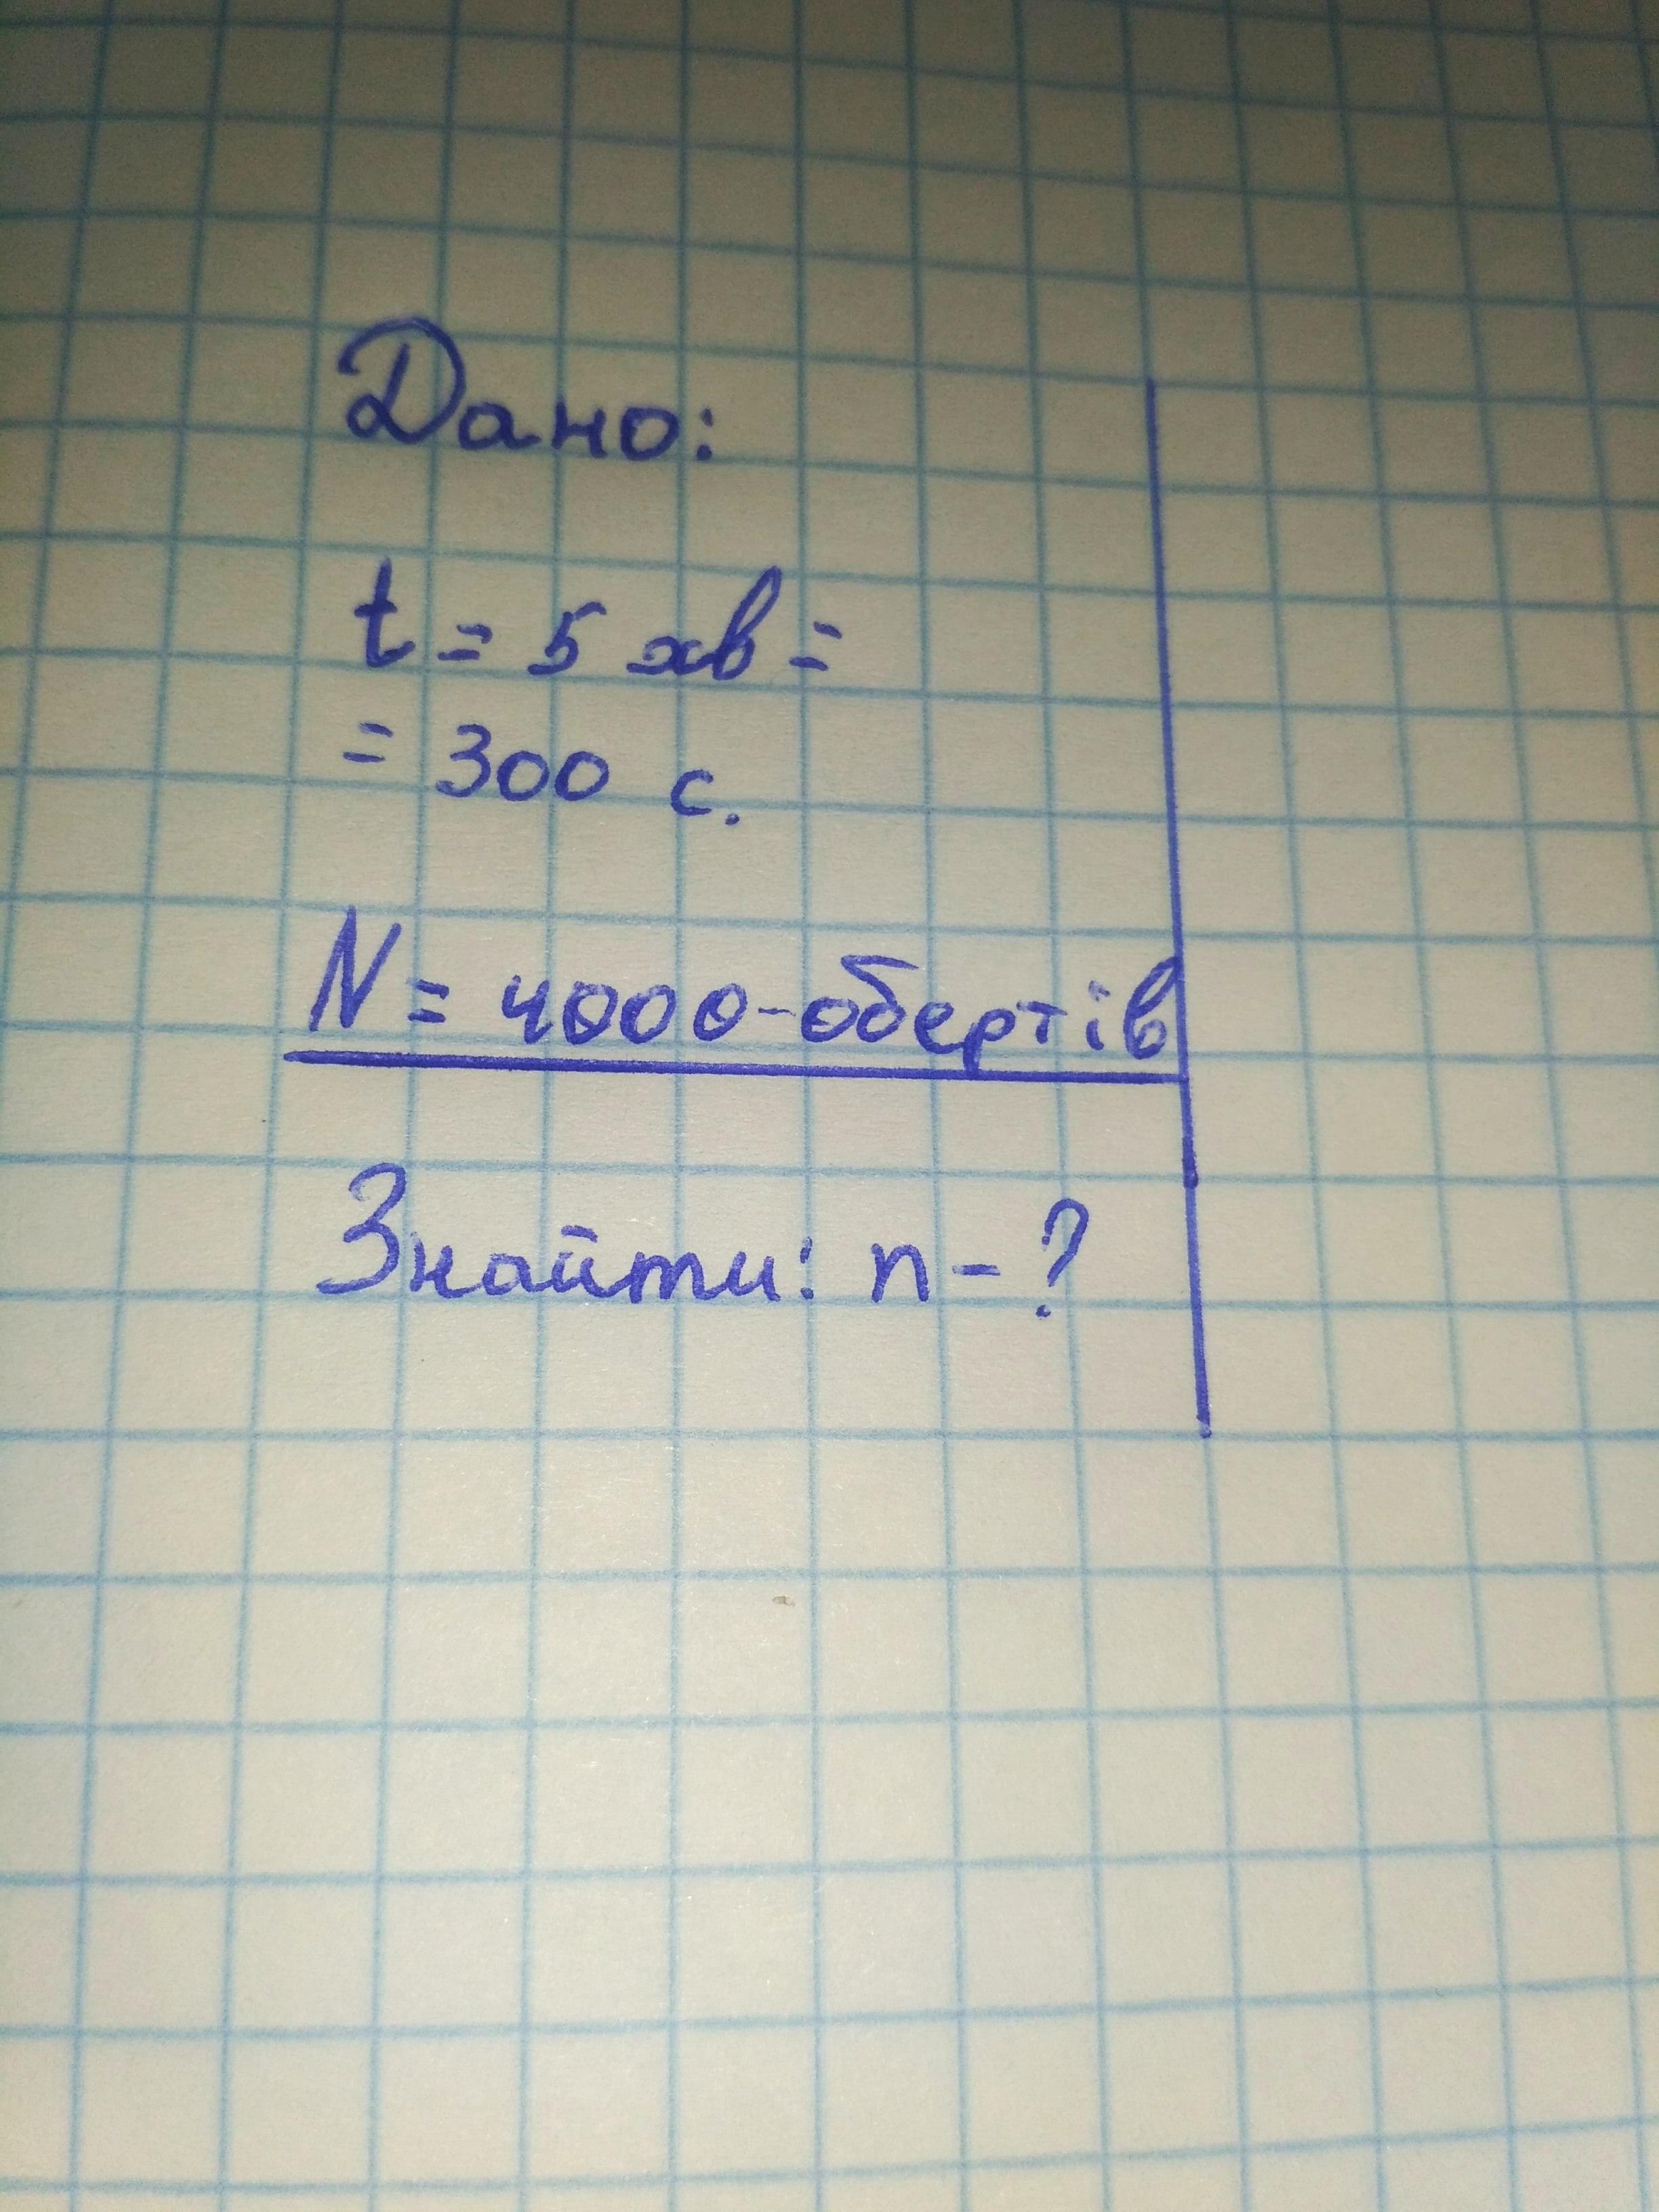 Дано:
t = 5 хв =
= 300 с.
N = 4000-обертів
Знайти: n - ?